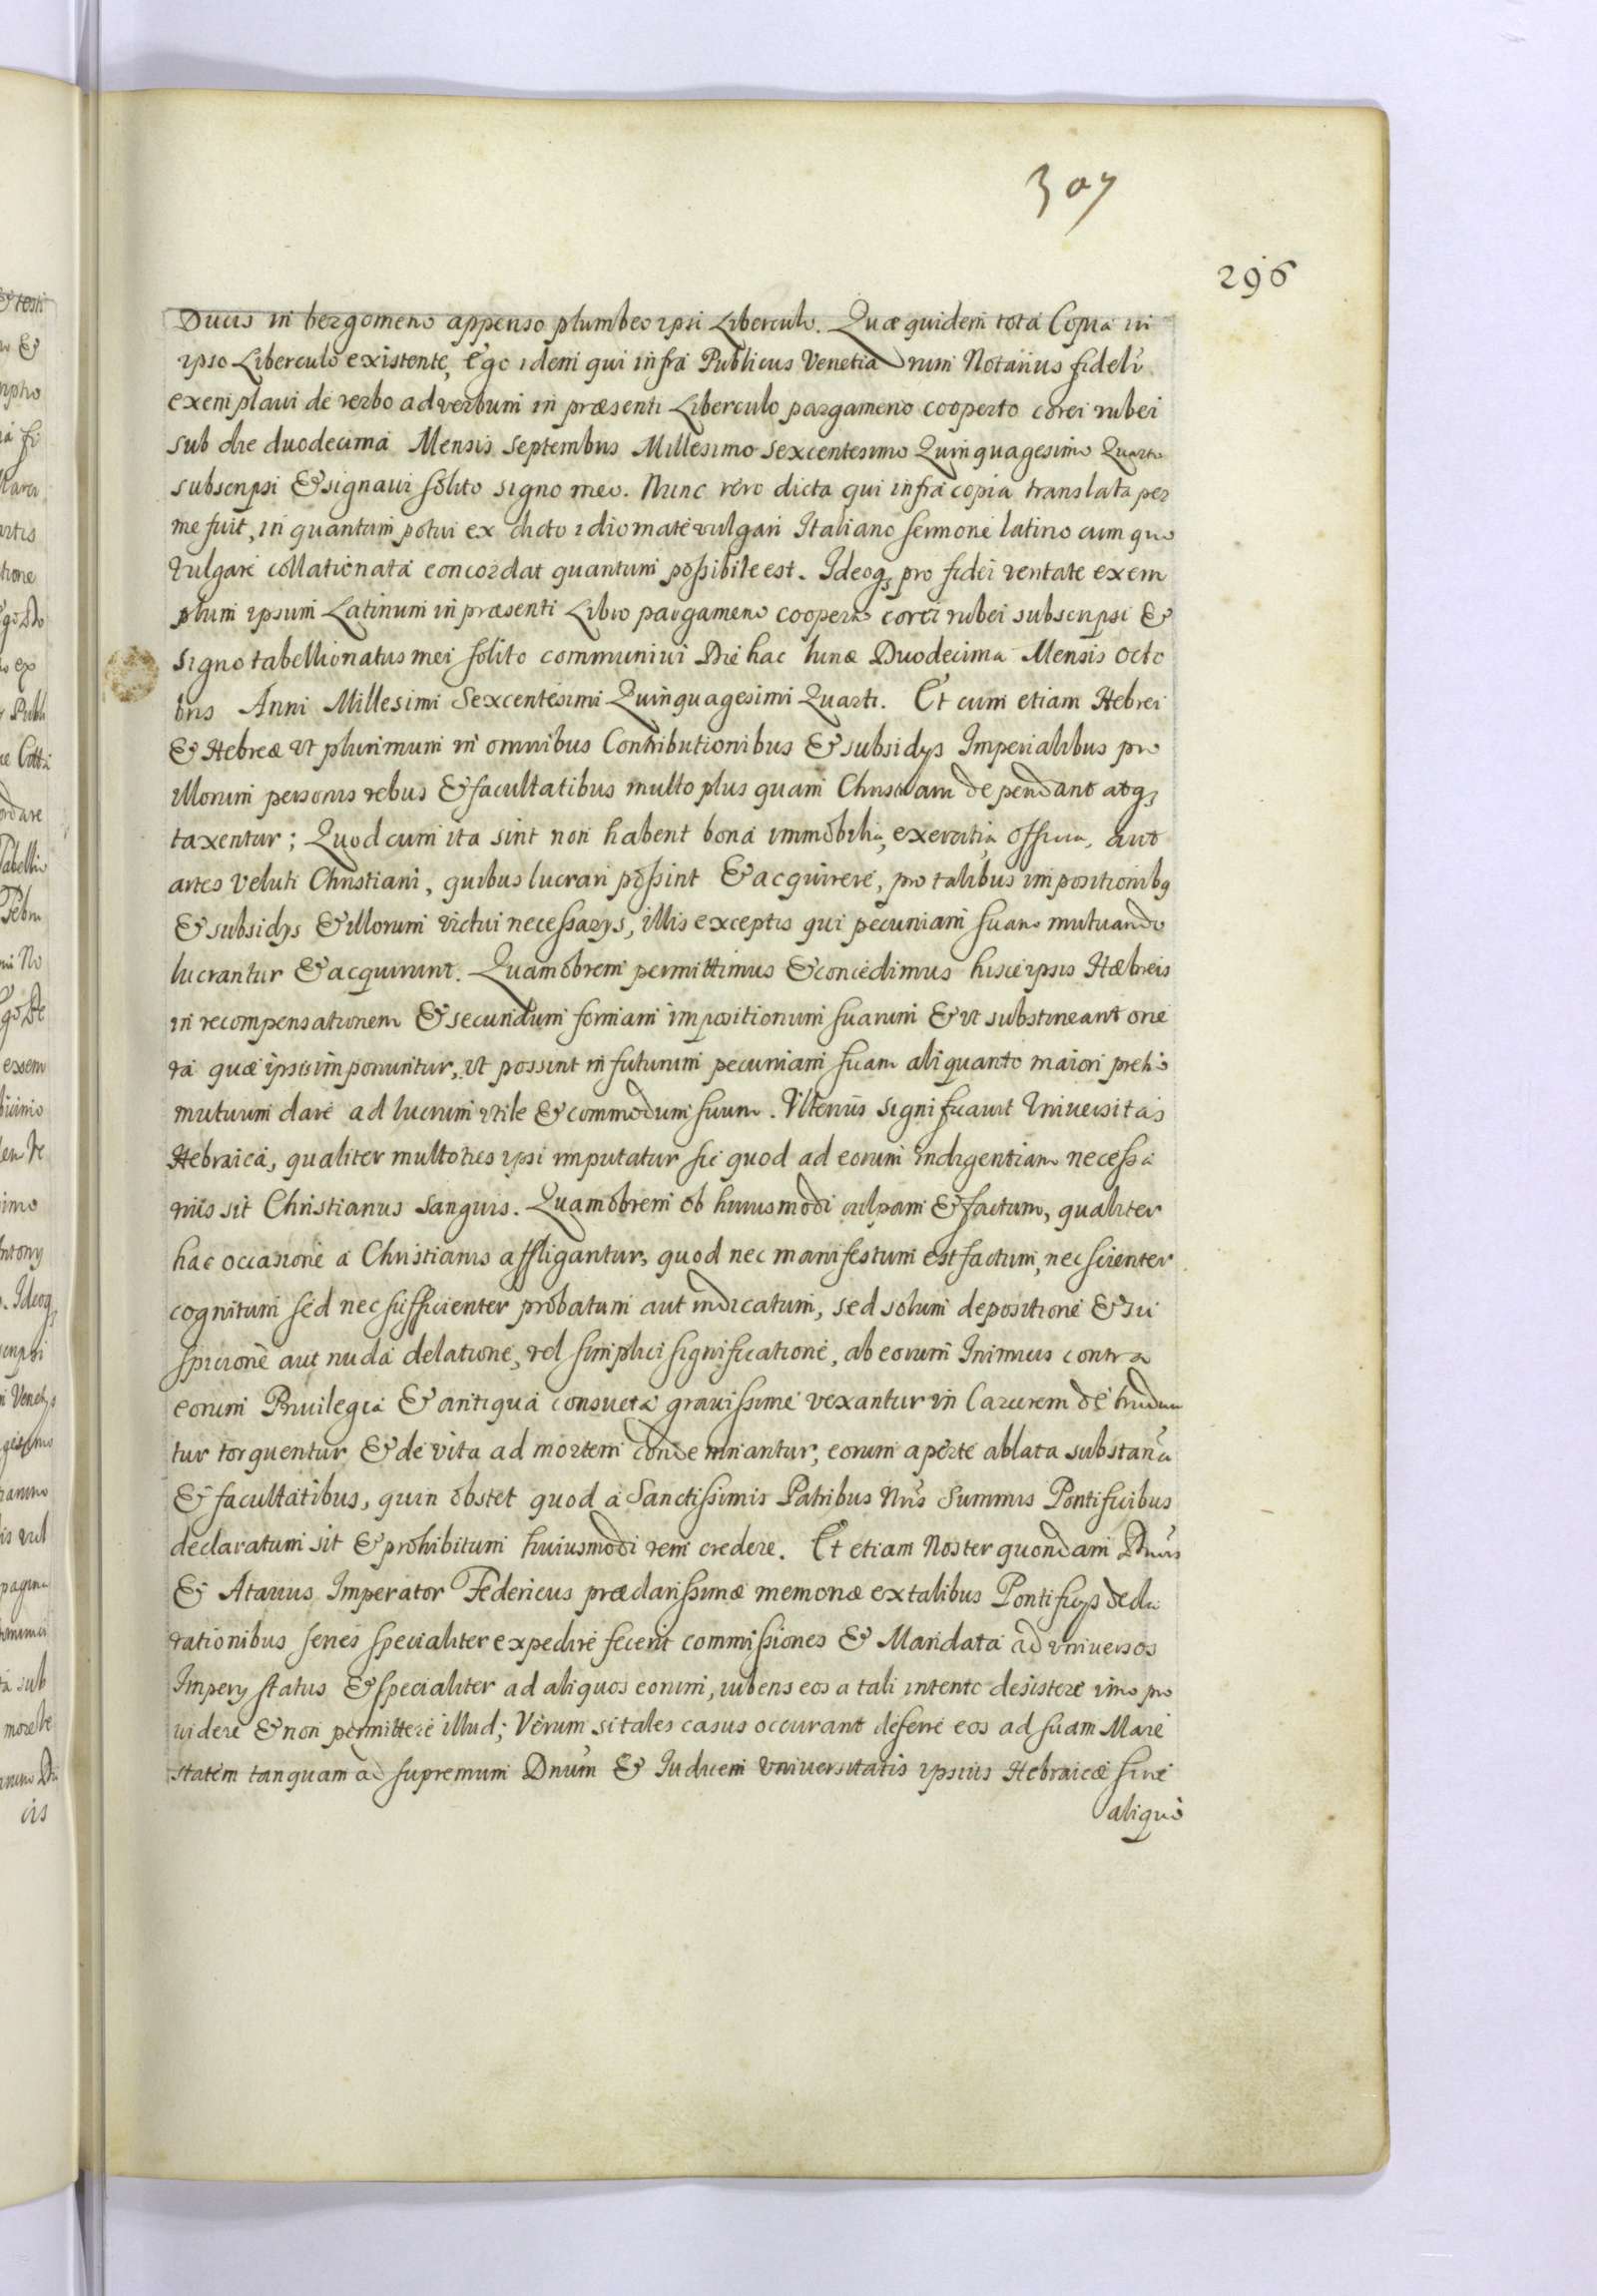 307
296
Ducis in bergomeno appenso plumbeo ipsi Liberculo. Quæ quidem tota Copia in
ipso Liberculo existente, Ego idem qui infra Publicus Venetiarum Notarius fidelr
exemplaui de verbo ad verbum in præsenti Liberculo pargameno cooperto corei rubei
sub die duodecima Mensis septembris Millesimo sexcentesimo Quinquagesimo Quarto
subscripsi & signaui solito signo meo. Nunc vero dicta qui infra copia translata per
me fuit, in quantum potui ex dicto idiomate vulgari Italiano sermone latino cum quo
vulgare collationata concordat quantum possibile est. Ideoq3 pro fidei veritate exem
plum ipsum Latinum in præsenti Libro pargameno cooperto corei rubei subscripsi &
signo tabellionatus mei solito communiui Die hac lunæ Duodecima Mensis Octo
bris Anni Millesimi Sexcentesimi Quinquagesimi Quarti. Et cum etiam Hebrei
& Hebreæ vt plurimum in omnibus Contributionibus & subsidys Imperialibus pro
illorum personis rebus & facultatibus multo plus quam Christiani dependant atq3
taxentur; Quod cum ita sint non habent bona immobilia, exercitia, officia, aut
artes veluti Christiani, quibus lucrari possint & acquirere, pro talibus impositionibq
& subsidys & illorum victui necessarys, illis exceptis qui pecuniam suam mutuando
lucrantur & acquirunt. Quamobrem permittimus & concedimus hisce ipsis Hæbreis
in recompensationem & secundum formam impositionum suarum & vt substineant one
ra quæ ipsis imponuntur, vt possint in futurum pecuniam suam aliquanto maiori pretio
mutuum dare ad lucrum vtile & commodum suum. Vlterius significauit Vniuersitas
Hebraica, qualiter multoties ipsi imputatur sic quod ad eorum indigentiam necessa
rius sit Christianus sanguis. Quamobrem ob huiusmodi culpam & factum, qualiter
hac occasione a Christianis affligantur, quod nec manifestum est factum, nec scienter
cognitum sed nec sufficienter probatum aut indicatum, sed solum depositione & su
spicione aut nuda delatione, vel simplici significatione, ab eorum Inimicis contra
eorum Priuilegia & antiqua consueta grauissime vexantur in Carcerem detrudun
tur torquentur & de vita ad mortem condemnantur, eorum aperte ablata substantia
& facultatibus, quin obstet quod a Sanctissimis Patribus Nris Summis Pontificibus
declaratum sit & prohibitum huiusmodi rem credere. Et etiam Noster quondam Dnus
& Atauus Imperator Federicus præclarissimæ memoriæ ex talibus Pontificys decla
rationibus series specialiter expedire fecerit commissiones & Mandata ad vniuersos
Impery status & specialiter ad aliquos eorum, iubens eos a tali intento desistere imo pro
uidere & non permittere illud; Verum si tales casus occurant deferre eos ad suam Maie
statem tanquam ad supremum Dnum & Iudicem Vniuersitatis ipsius Hebraicæ sine
aliquo